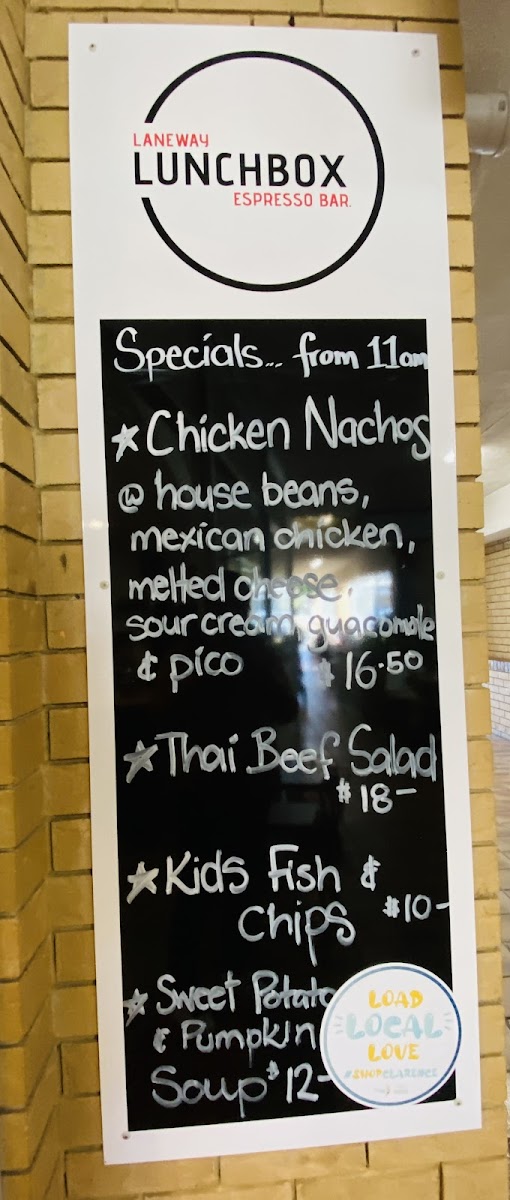 LANEWAY
LUNCHBOX
ESPRESSO BAR.
Specials... from 11am
Chicken Nachos
@ house beans,
mexican chicken,
melted cheese,
sour cream, guacomole
& pico $16.50
Thai Beef Salad
$18-
Kids Fish &
Chips $10-
Sweet Potato
& Pumpkin
Soup $12-
LOAD
LOCAL
LOVE
#SHOPCLARENCE